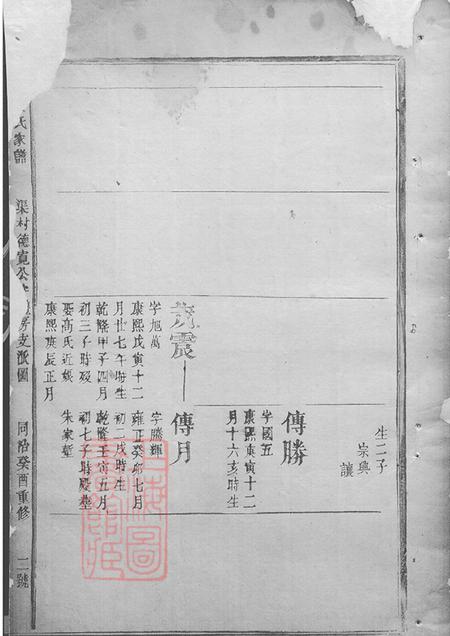 生二子
宗興
讓
傳勝
字國五
康熙庚寅十二
月十六亥時生
茂震
字旭萬
康熙戊寅十二
月廿七午時生
乾隆甲子四月
初三子時歿
娶高氏近
康熙庚辰正月
傳月
字勝輝
雍正癸卯七月
初二戌時生
乾隆壬寅五月
初七子時歿塟
朱家
氏家譜
渠村德寬公房支派圖
同治癸酉重修
二號